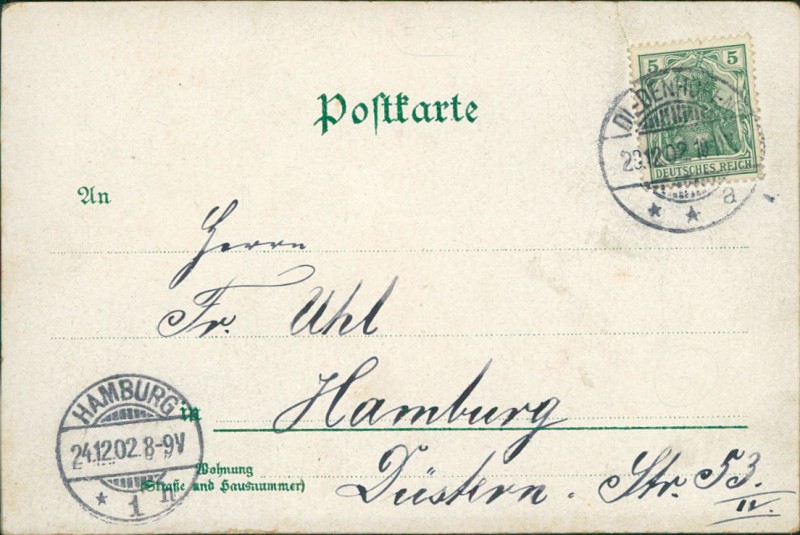 Postkarte
5 5
DEUTSCHES REICH
23.12.02
a
An
Herrn
Fr. Uhl
in Hamburg
Wohnung
(Straße und Hausnummer)
Düstern-Str. 53.
II.
HAMBURG
24.12.02.8-9V
* 1 n